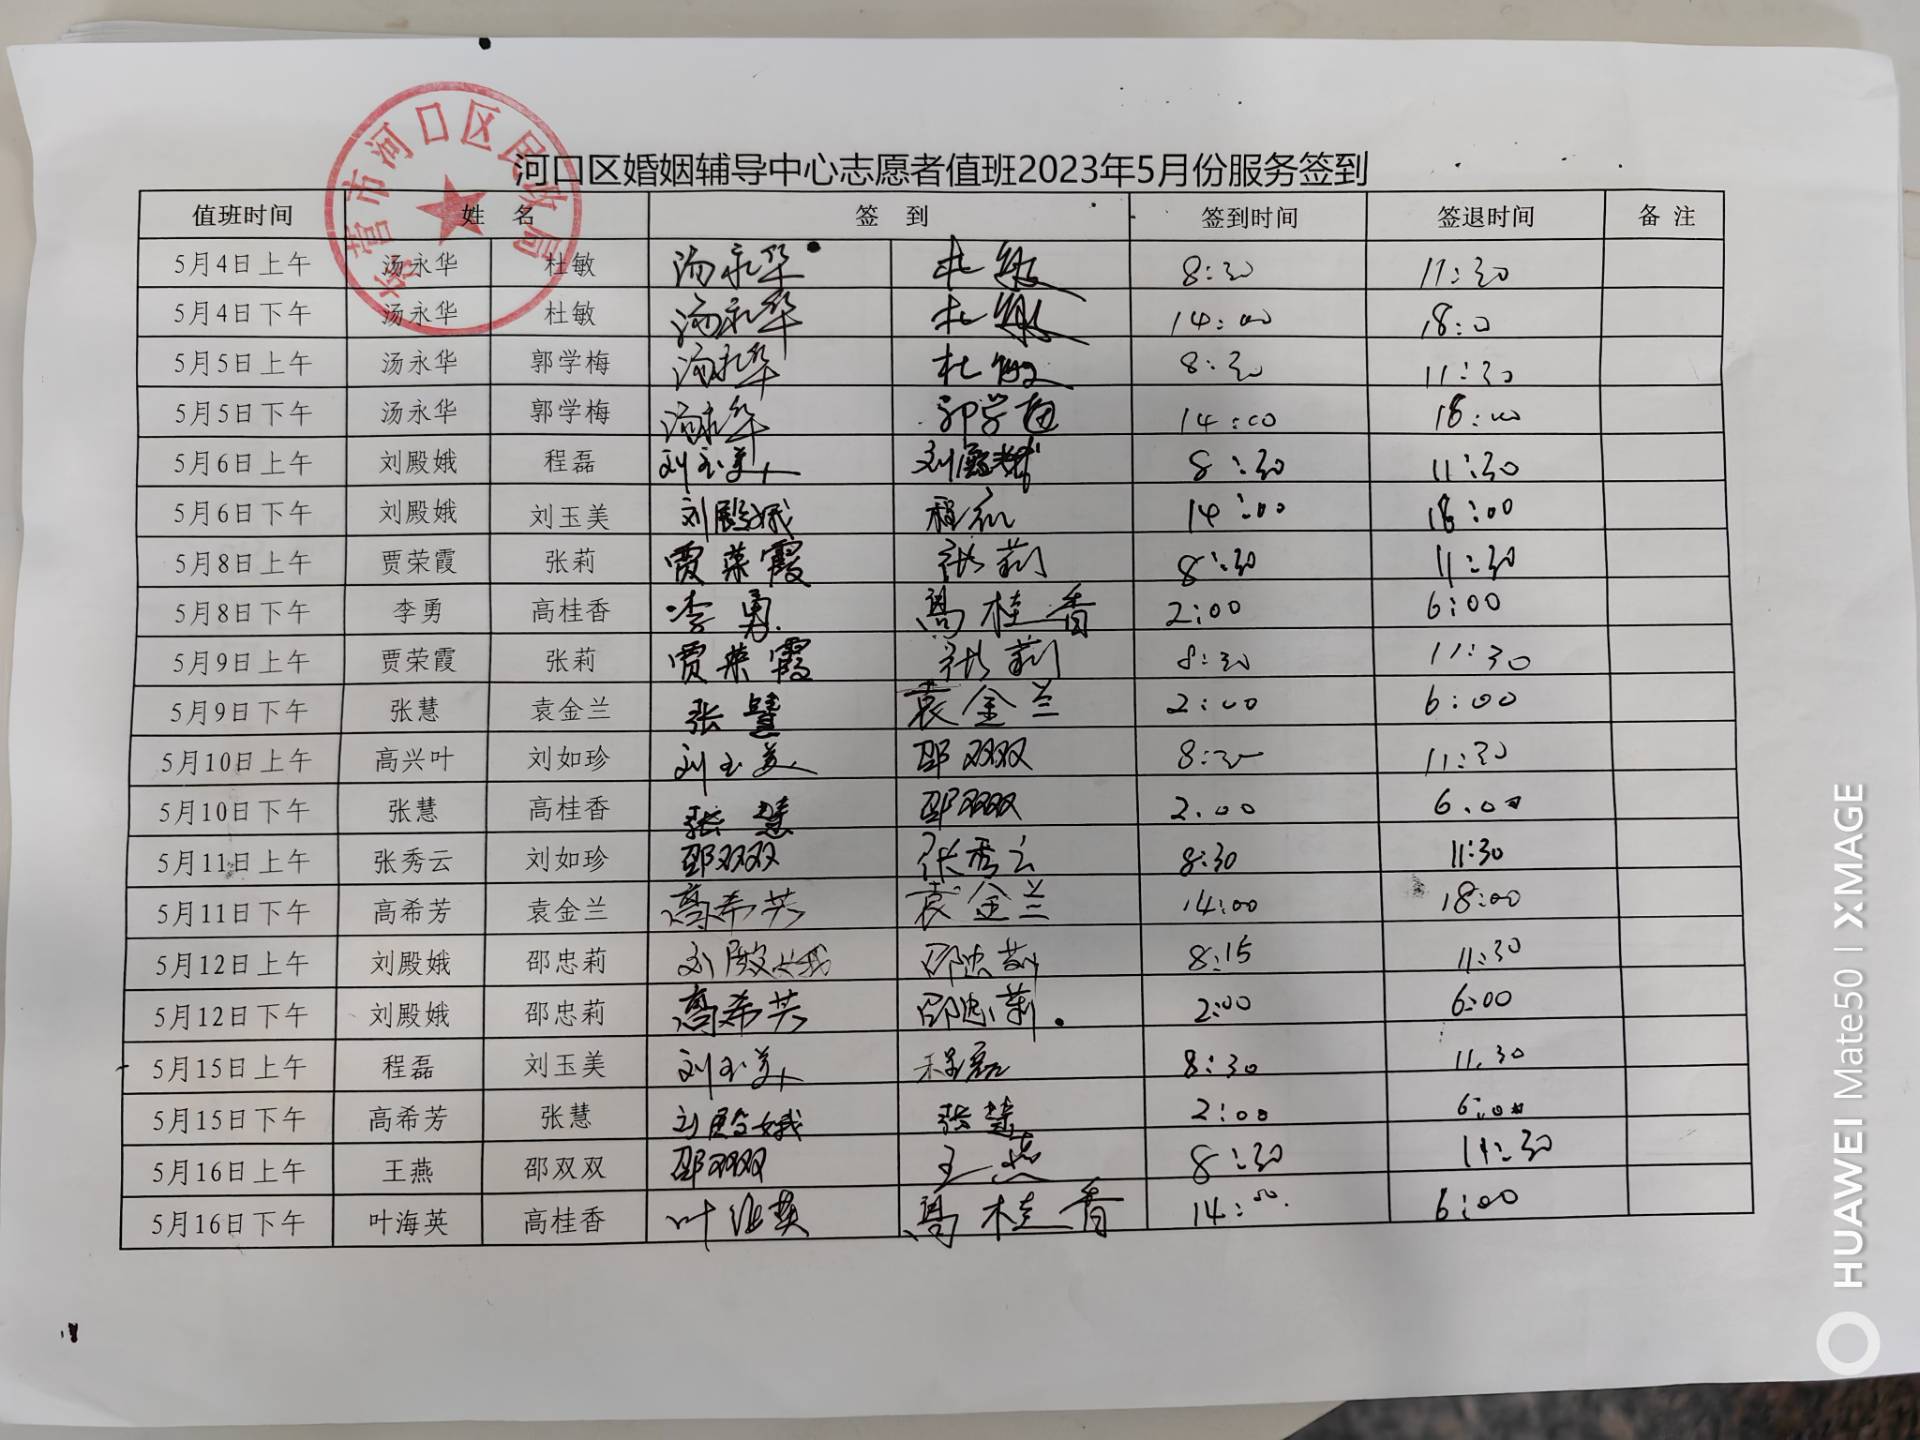 东营市河口区民政局
河口区婚姻辅导中心志愿者值班2023年5月份服务签到
值班时间 姓 名 签 到 签到时间 签退时间 备 注
5月4日上午 汤永华 杜敏 汤永华 杜敏 8:30 11:30
5月4日下午 汤永华 杜敏 汤永华 杜敏 14:00 18:0
5月5日上午 汤永华 郭学梅 汤永华 杜敏 8:30 11:30
5月5日下午 汤永华 郭学梅 汤永华 郭学梅 14:00 18:00
5月6日上午 刘殿娥 程磊 刘玉美 刘殿娥 8:30 11:30
5月6日下午 刘殿娥 刘玉美 刘殿娥 程磊 14:00 18:00
5月8日上午 贾荣霞 张莉 贾荣霞 张莉 8:30 11:30
5月8日下午 李勇 高桂香 李勇 高桂香 2:00 6:00
5月9日上午 贾荣霞 张莉 贾荣霞 张莉 8:30 11:30
5月9日下午 张慧 袁金兰 张慧 袁金兰 2:00 6:00
5月10日上午 高兴叶 刘如珍 刘玉美 邵双双 8:30 11:30
5月10日下午 张慧 高桂香 张慧 邵双双 2.00 6.00
5月11日上午 张秀云 刘如珍 邵双双 张秀云 8:30 11:30
5月11日下午 高希芳 袁金兰 高希芳 袁金兰 14:00 18:00
5月12日上午 刘殿娥 邵忠莉 刘殿娥 邵忠莉 8:15 11:30
5月12日下午 刘殿娥 邵忠莉 高希芳 邵忠莉. 2:00 6:00
5月15日上午 程磊 刘玉美 刘玉美 程磊 8:30 11.30
5月15日下午 高希芳 张慧 刘殿娥 张慧 2:00 6:00
5月16日上午 王燕 邵双双 邵双双 王燕 8:30 11:30
5月16日下午 叶海英 高桂香 叶海英 高桂香 14:00 6:00
HUAWEI Mate50 | XMAGE